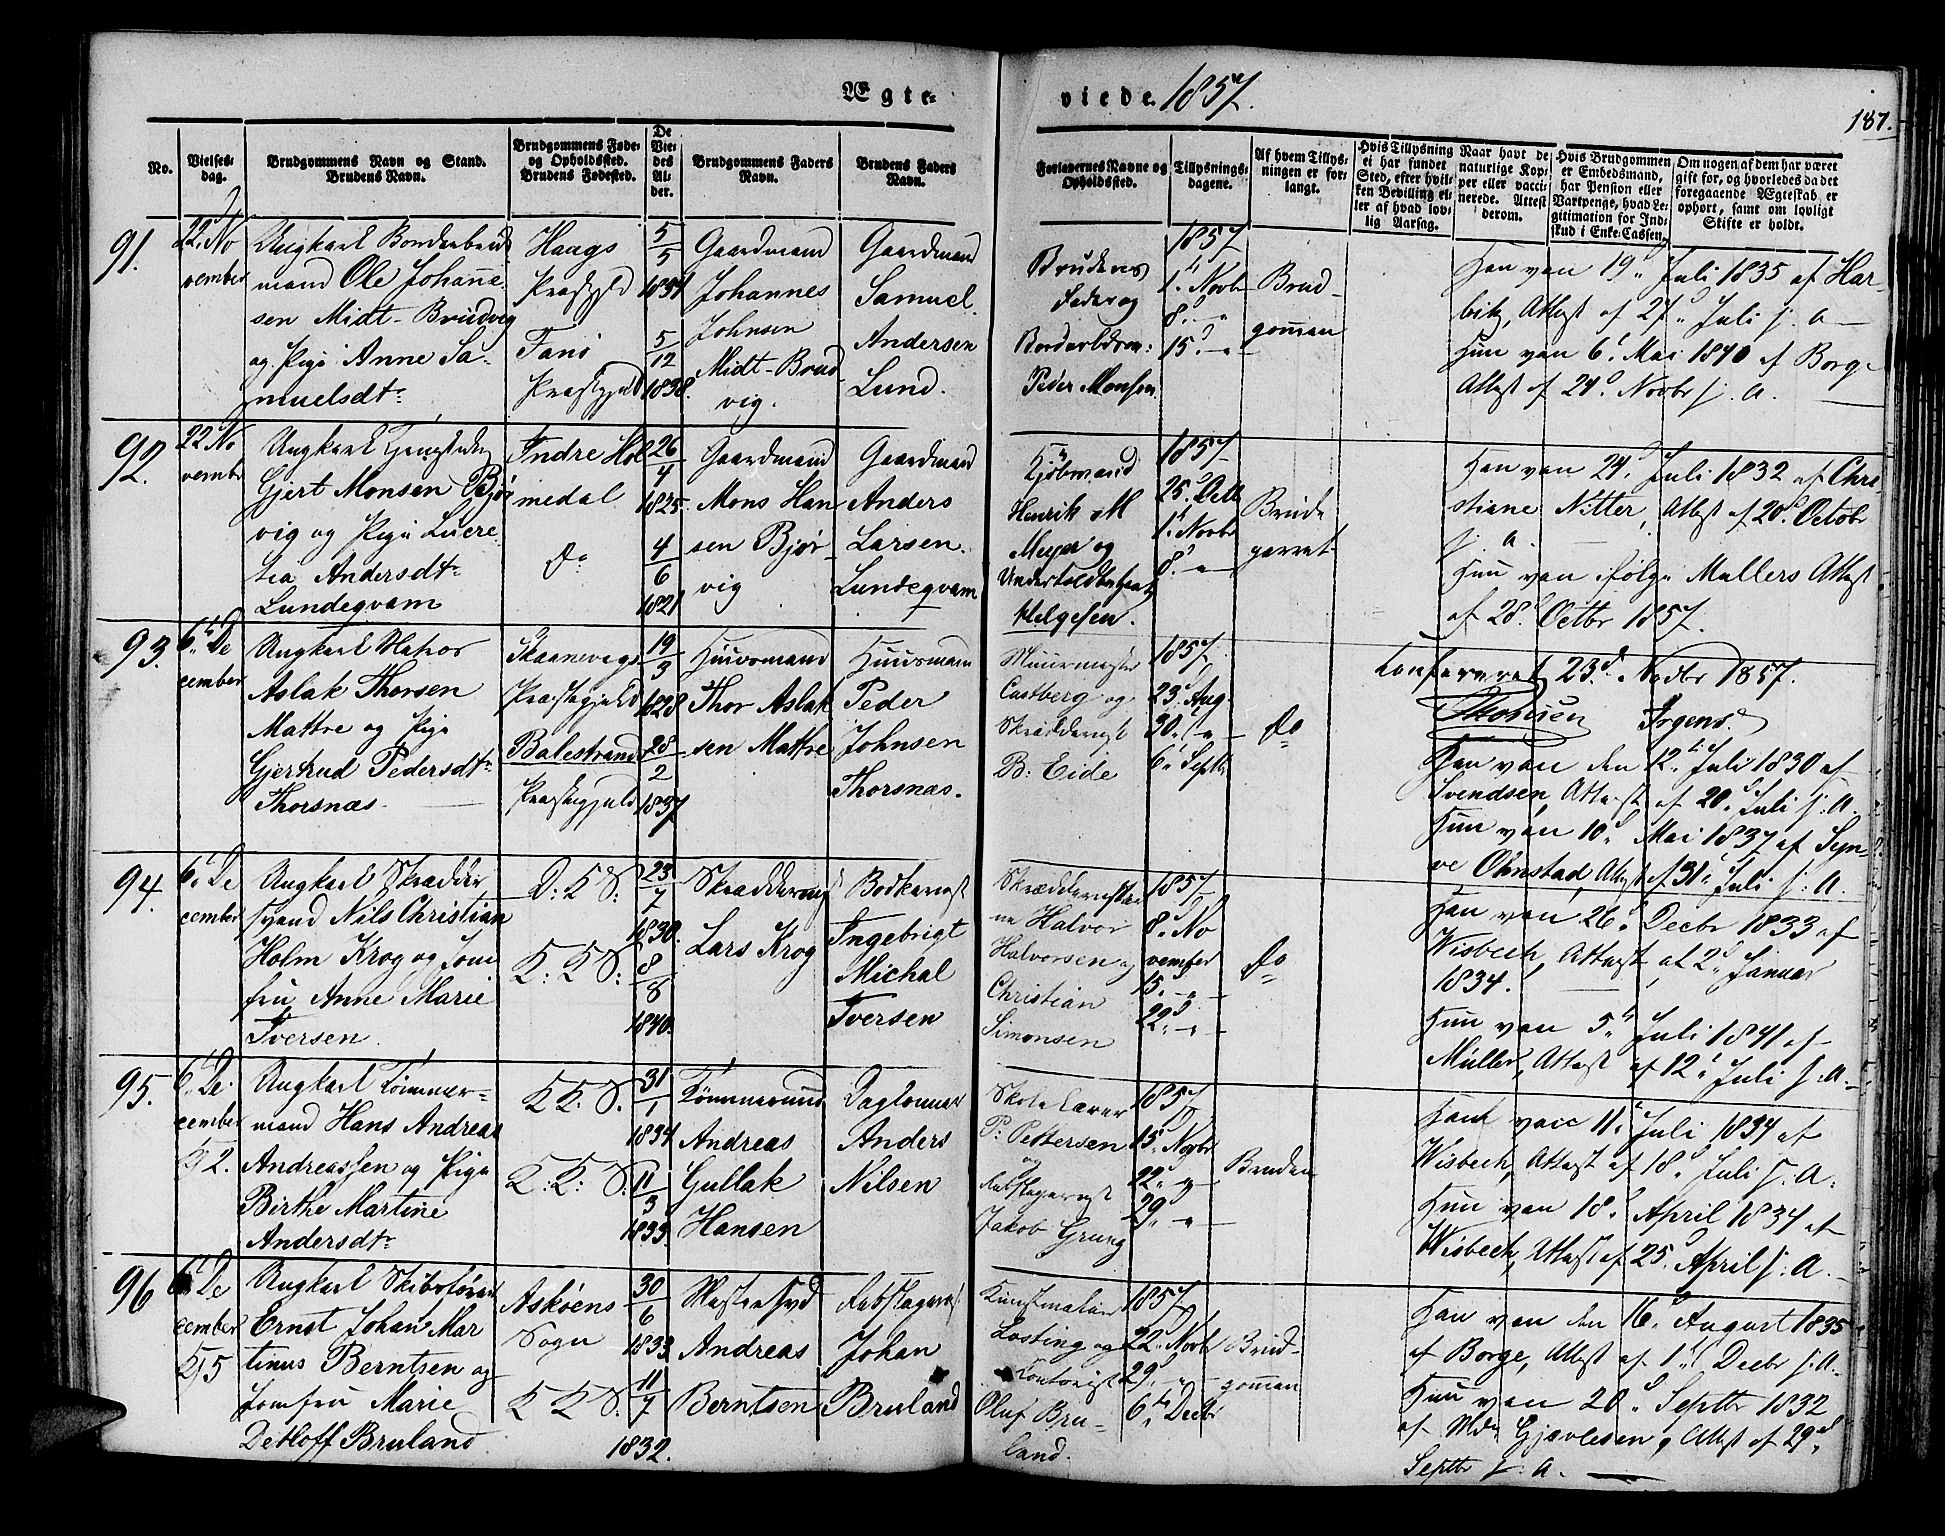 Ægte-
viede. 1857.
187.
No.
Vielses-
dag.
Brudgommens Navn og Stand.
Brudens Navn.
Brudgommens Føde-
og Opholdssted.
Brudens Fødested.
De
Vie-
des
Al-
der.
Brudgommens Faders
Navn.
Brudens Faders
Navn.
Forlovernes Navne og
Opholdssted.
Tillysnings-
dagene.
Af hvem Tillys-
ningen er for-
langt.
Hvis Tillysning
ei har fundet
Sted, efter hvil-
ken Bevilling el-
ler af hvad lov-
lig Aarsag.
Naar havt de
naturlige Kop-
per eller vacci-
nerede. Attest
derom.
Hvis Brudgommen
er Embedsmand,
har Pension eller
Vartpenge, hvad Le-
gitimation for Ind-
skud i Enke-Cassen.
Om nogen af dem har været
gift før, og hvorledes da det
foregaaende Ægteskab er
ophørt, samt om lovligt
Skifte er holdt.
91.
22. No
vember
Ungkarl Bonde
mand Ole Johanne-
sen Midt-Brudvig
og Pige Anne Sa-
muelsdt.
Haugs
Præstegjeld
Fanö
Præstegjeld
5/5
1834
5/12
1838.
Gaardmand
Johannes
Johnsen
Midt-Brud
vig.
Gaardmand
Samuel
Andersen
Lund.
Brudens
Fader og
Peder Monsen
1857
1. Novbr
8. -
15. -
Brud-
gommen
Han vac 19. Juli 1835 af Har-
bitz, Attest af 27. Juli s. a.
Hun vac 6. Mai 1840 af Borge
Attest af 24. Novbr s. a.
92.
22 No
vembr
Ungkarl
Gjert Monsen Bjør
vig og Pige Lucre-
tia Andersdt.
Lundeqvam
Indre Hol
medal
do
26/4
1825
4/6
1821
Gaardmand
Mons Han
sen Bjør-
vig
Gaardmand
Anders
Larsen
Lundeqvam
Kjöbmand
Henrik M
Meyer og
Helgesen.
1857
25. Octb
1. Novbr
8. -
Brude
parret
Han vac 24. Juli 1832 af Chri-
stiane Nitter, Attest af 20. Octobr
s. a.
Hun vac ifølge Mullers Attest
af 28. Octbr 1857.
93.
6. De
cember
Ungkarl Matros
Aslak Thorsen
Mattre og Pige
Gjertrud Pedersdt.
Thorsnæs.
Skaanevigs
Præstegjeld
Balestrand
Præstegjeld
19/3
1828
28/2
1837
Huusmand
Thor Aslak
sen Mattre
Huusmand
Peder
Johnsen
Thorsnæs.
Muurmester
Castberg og
Skræddermst
B: Eide
1857
23. Aug.
30. -
6. Septb
do
Confereret 23. Novbr 1857.
Thomsen Irgens.
Han vac den 12. Juli 1830 af
Svendsen, Attest af 20. Juli s. A.
Hun vac 10. Mai 1837 af Syn-
ve Ohnstad, Attest af 31. Juli s. A.
94.
6. De
cember
Ungkarl Skrædder
svend Nils Christian
Holm Krog og Jom
fru Anne Marie
Iversen.
D: K S.
K: K S:
23/7
1830.
8/8
1840.
Skræddermst
Lars Krog
Bødkermst
Ingebrigt
Michal
Iversen
Skræddermestre
ne Halvor
Halvorsen og
Christian
Simonsen
1857
8. No
vember
15. -
22. -
do
Han vac 26. Decbr 1833 af
Wisbech, Attest af 2. Januar
1834.
Hun vac 5. Juli 1841 af
Müller, Attest af 12. Juli s. A.
95.
6. De-
cember
Ungkarl Tömmer-
mand Hans Andreas
Andreassen og Pige
Birthe Martine
Andersdt.
K K: S.
K: K: S.
31/1
1834
11/3
1833.
Tömmermand
Andreas
Gullak
Hansen
Daglönner
Anders
Nilsen
Skolelærer
P: Pettersen
og
Rebslagermst
Jakob Grung
1857
15. Novbr
22. -
29. -
Bruden
Han vac 11. Juli 1834 af
Wisbech, Attest af 18. Juli s. A.
Hun vac 18. April 1834 af
Wisbech, Attest af 25. April s. A.
96
6. De
cember
Ungkarl
Ernst Johan Mar
tinus Berntsen og
Jomfru Marie
Detloff Bruland
Asköens
Sogn
K K S.
30/6
1833
11/7
1832.
Andreas
Berntsen
Rebslagermst
Johan
Bruland
Kunstmaler
Losting og
Contorist
Oluf Bru-
land.
1857
22. Novb
29. -
6. Decbr
Brud-
gommen
Han vac den 16. August 1835
af Borge, Attest af 1. Decbr s. A.
Hun vac 20. Septbr 1832
af Gjævlesen, Attest af 29.
Septbr s. a.